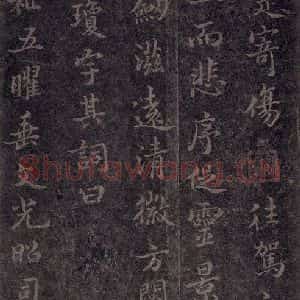 寄傷往駕
而悲序促靈景
滋遠清徽方
瓊字其詞曰
五曜垂文光昭司
Shufawang.CN